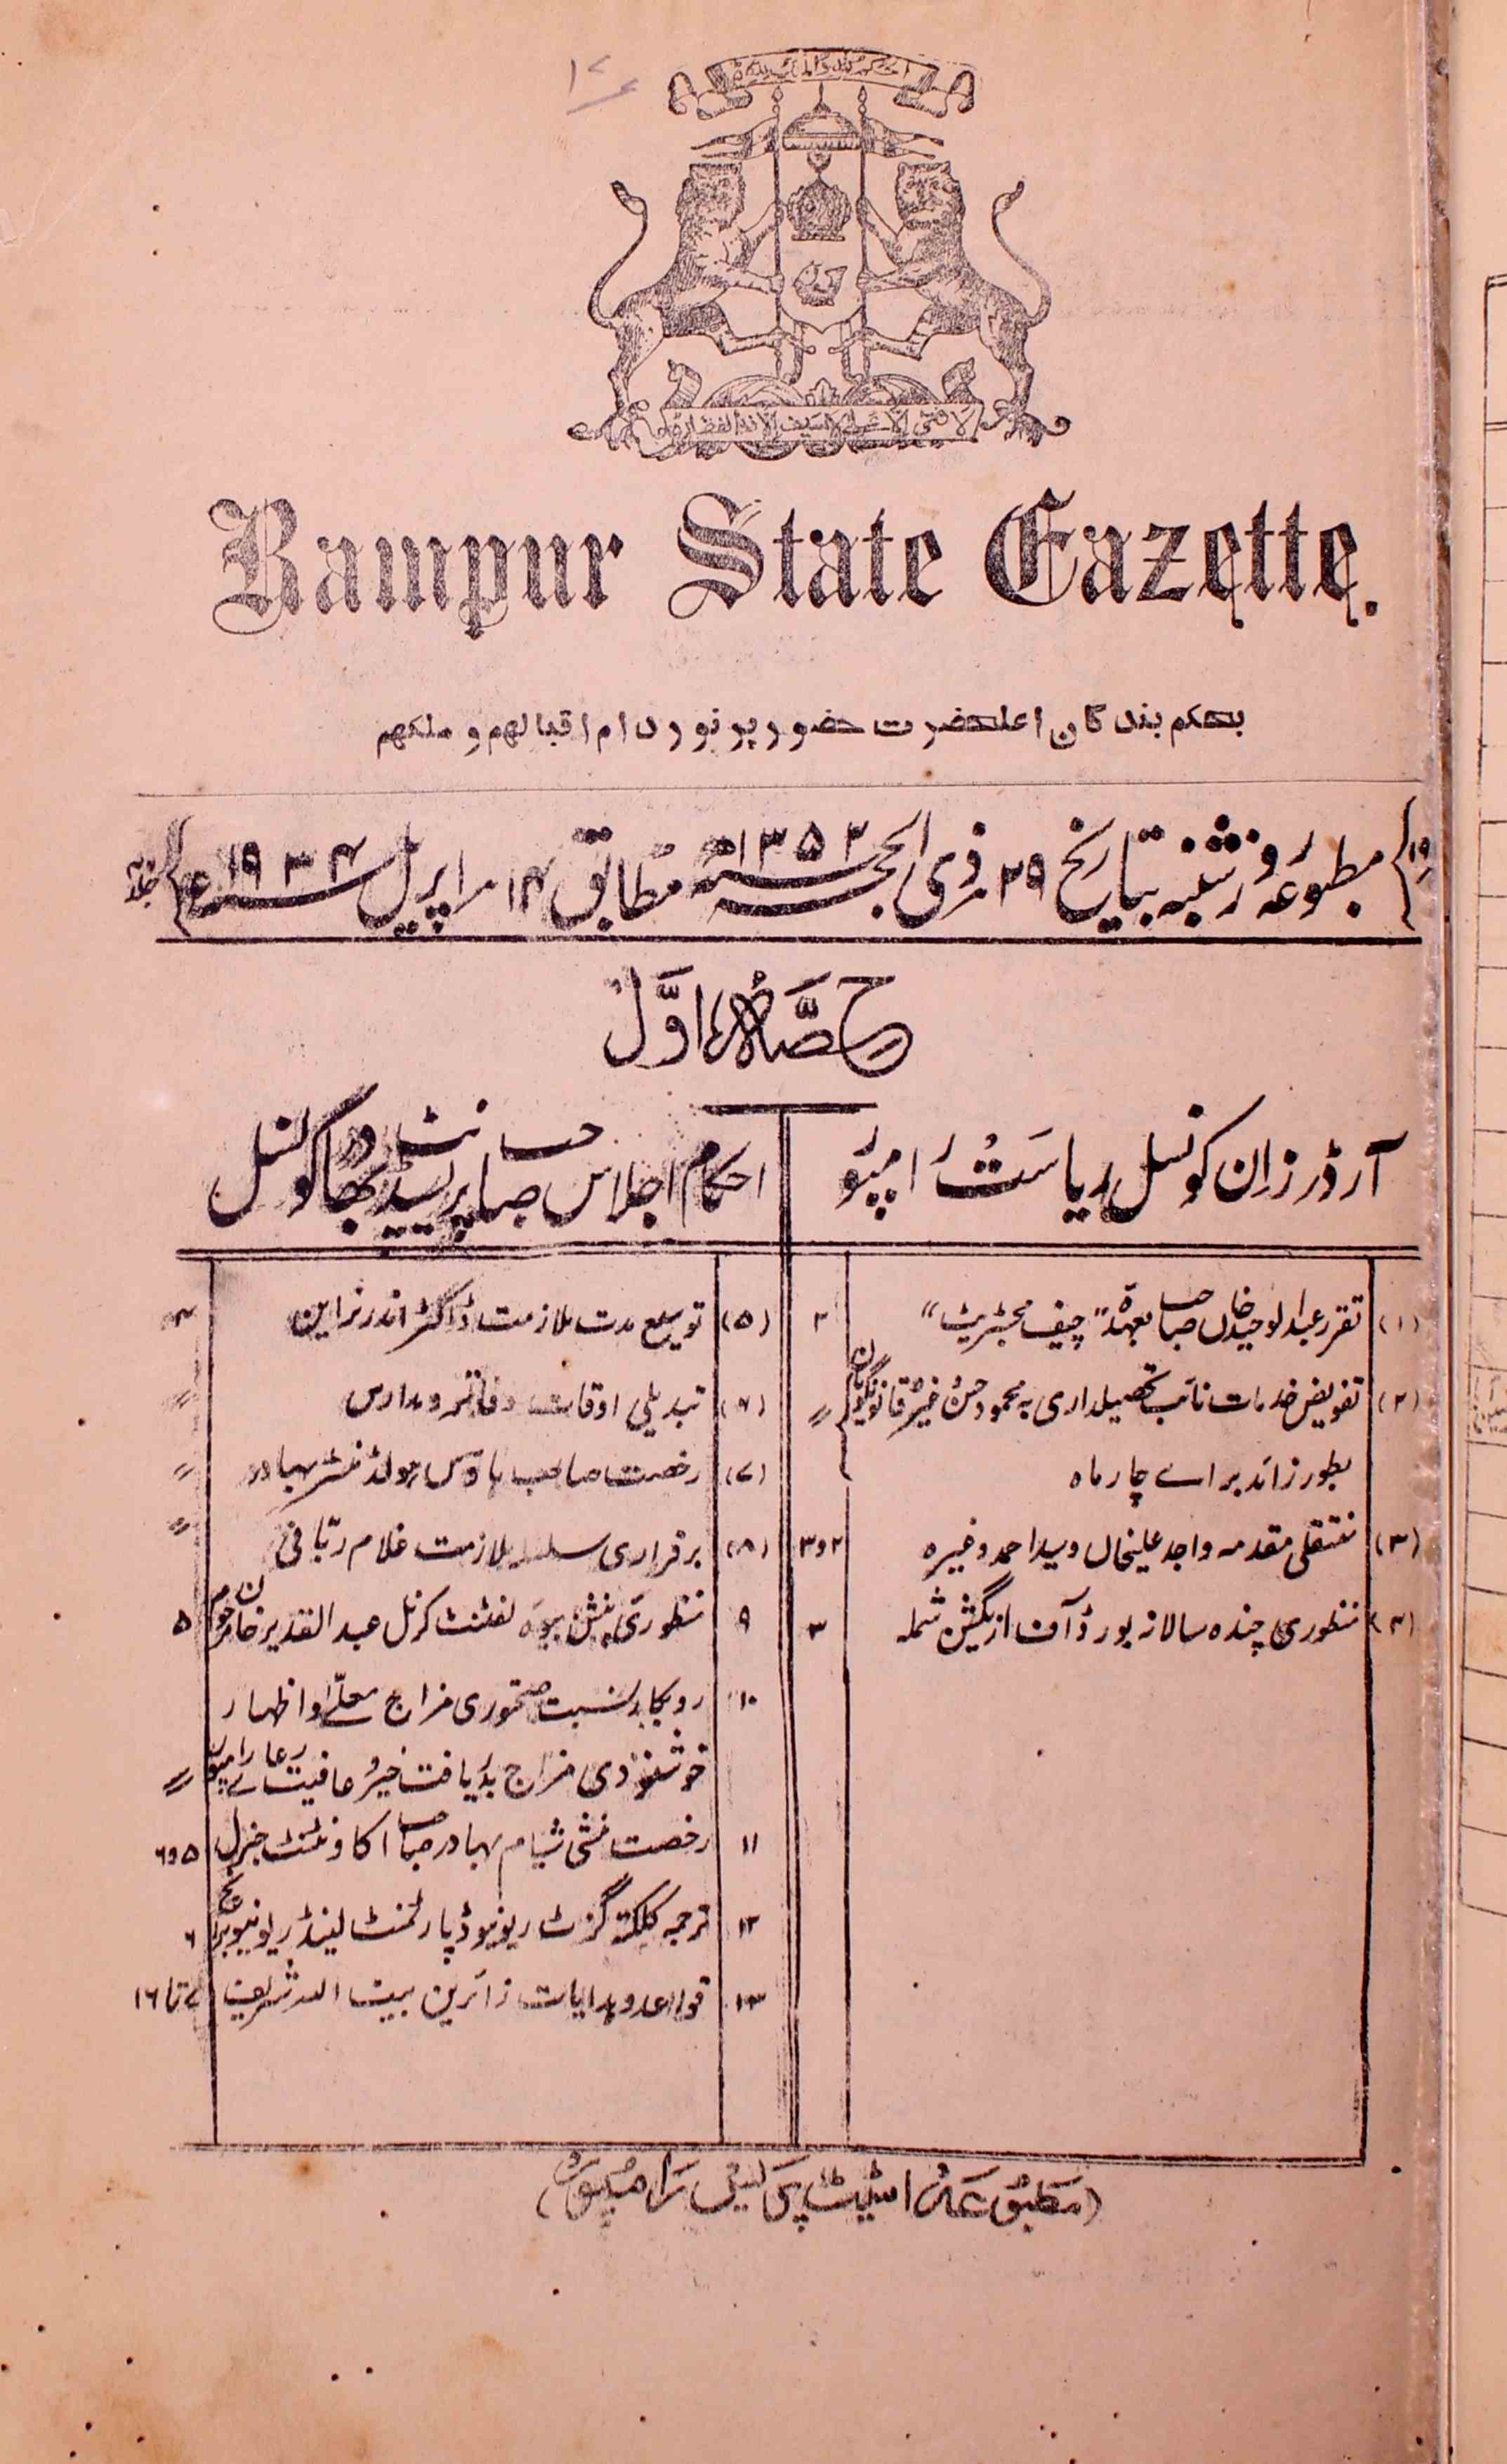 لا فتى إلا علي لا سيف إلا ذوالفقار
Rampur State Gazette.
بحکم بندگان اعلحضرت حضور پر نور دام اقبالهم و ملکهم
مطبوعہ روز شنبہ بتاریخ ۲۹ ذی الحجہ ۱۳۵۲ھ مطابق ۱۴ اپریل ۱۹۳۴ء
حصہ اول
آرڈرز ان کونسل ریاست رامپور
(۱) تقرر عبدالوحید خاں صاحب بعہدۂ "چیف مجسٹریٹ" ۲
(۲) تفویض خدمات نائب تحصیلداری بہ محمود حسن خیر قانونگویان 〃
بطور زائد براے چار ماہ
(۳) منتقلی مقدمہ واجد علیخاں و سید احمد وغیرہ ۲و۳
(۴) منظوری چندہ سالانہ بورڈ آف اریگیشن شملہ ۳
احکام اجلاس صاحب پریسیڈنٹ بہادر کونسل
(۵) توسیع مدت ملازمت ڈاکٹر اندر نراین ۴
(۶) تبدیلی اوقات دفاتر و مدارس 〃
(۷) رخصت صاحب ہاؤس ہولڈ منسٹر بہادر 〃
(۸) برقراری سلسلہ ملازمت غلام ربانی 〃
۹ منظوری پنشن بیوہ لفٹنٹ کرنل عبدالقدیر خان مرحوم ۵
۱۰ روبکار نسبت صحتوری مزاج معلّے و اظہار
خوشنودی مزاج بدریافت خیر و عافیت رعایاے رامپور 〃
۱۱ رخصت منشی شیام بہادر صاحب اکاونٹنٹ جنرل ۵و۶
۱۲ ترجمہ کلکتہ گزٹ ریونیو ڈپارٹمنٹ لینڈ ریونیو برانچ ۶
۱۳ قواعد و ہدایات زائرین بیت اللہ شریف ۷ تا ۱۶
(مطبوعہ اسٹیٹ پریس رامپور)